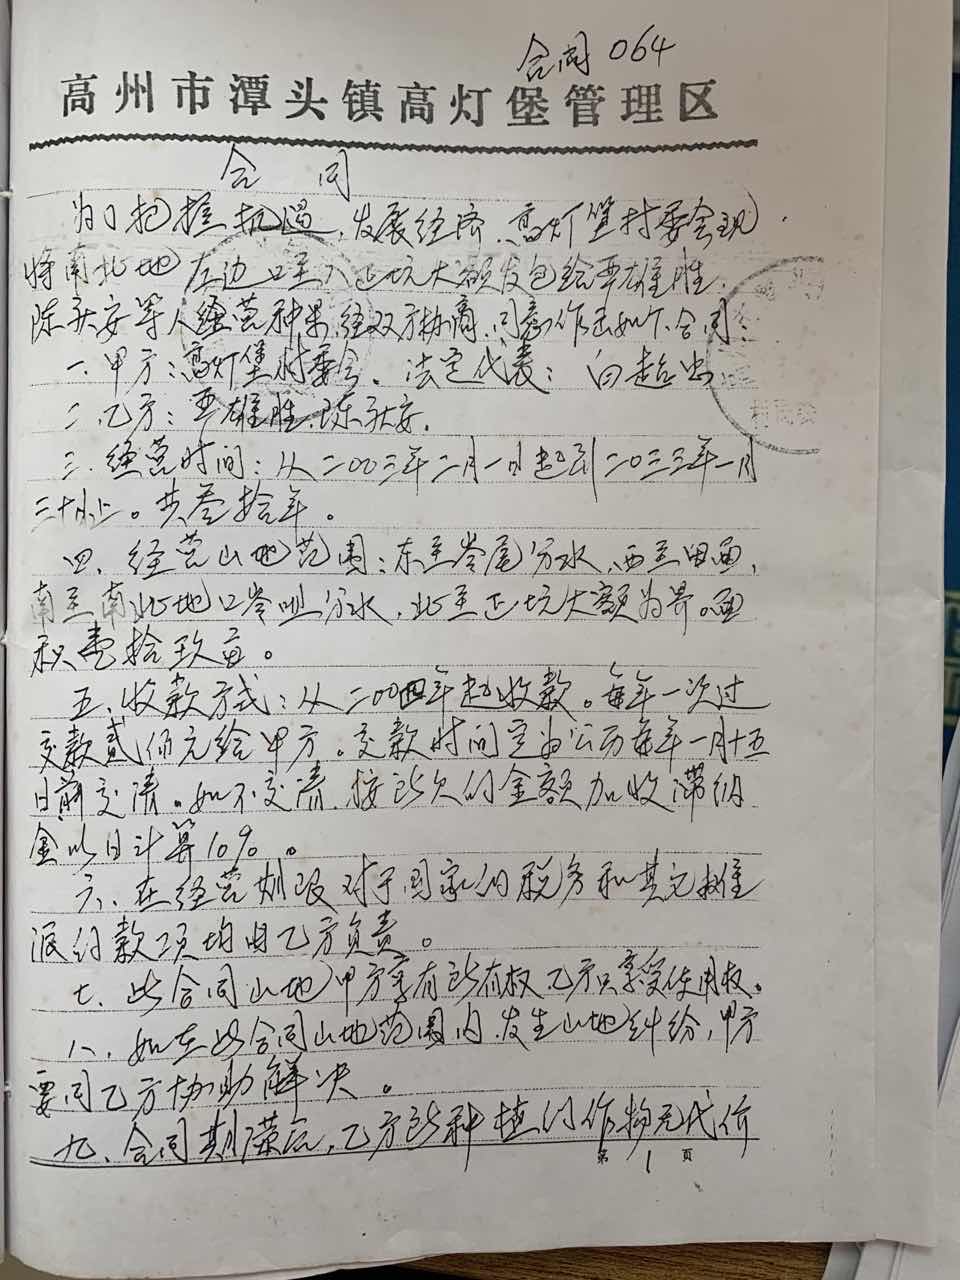 合同064
高州市潭头镇高灯堡管理区
合同
为了把握机遇,发展经济,高灯堡村委会现
将南北地左边口至入正坑大额发包给 雄胜、
陈 安等人经营种果,经双方协商,同意作出如下合同:
一、甲方:高灯堡村委会。法定代表:白超忠
二、乙方: 雄胜、陈 安。
三、经营时间:从二00三年二月一日起到二0三三年一月
三十日止。共叁拾年。
四、经营山地范围:东至岭尾分水、西至田面、
南至南北地口岭咀分水,北至正坑大额为界。面
积壹拾玖亩。
五、收款方式:从二00四年起收款。每年一次过
交款贰佰元给甲方。交款时间定为公历每年一月十五
日前交清。如不交清,按所欠的金额加收滞纳
金以日计算10%。
六、在经营期限对于国家的税务和其它摊
派的款项均由乙方负责。
七、此合同山地甲方享有所有权,乙方只享受使用权。
八、如在此合同山地范围内,发生山地纠纷,甲方
要同乙方协助解决。
九、合同期满后,乙方所种植的作物无代价
第1页